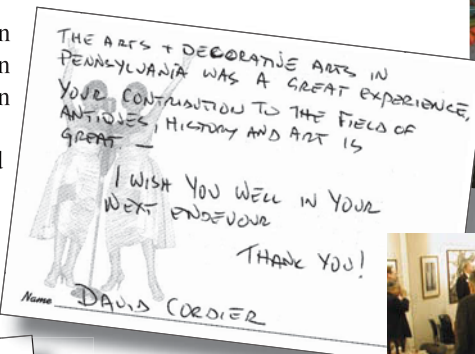 THE ARTS + DECORATIVE ARTS IN
PENNSYLVANIA WAS A GREAT EXPERIENCE,
YOUR CONTRIBUTION TO THE FIELD OF
ANTIQUES, HISTORY AND ART IS
GREAT. —
I WISH YOU WELL IN YOUR
NEXT ENDEVOUR
THANK YOU!
Name DAVID CORDIER